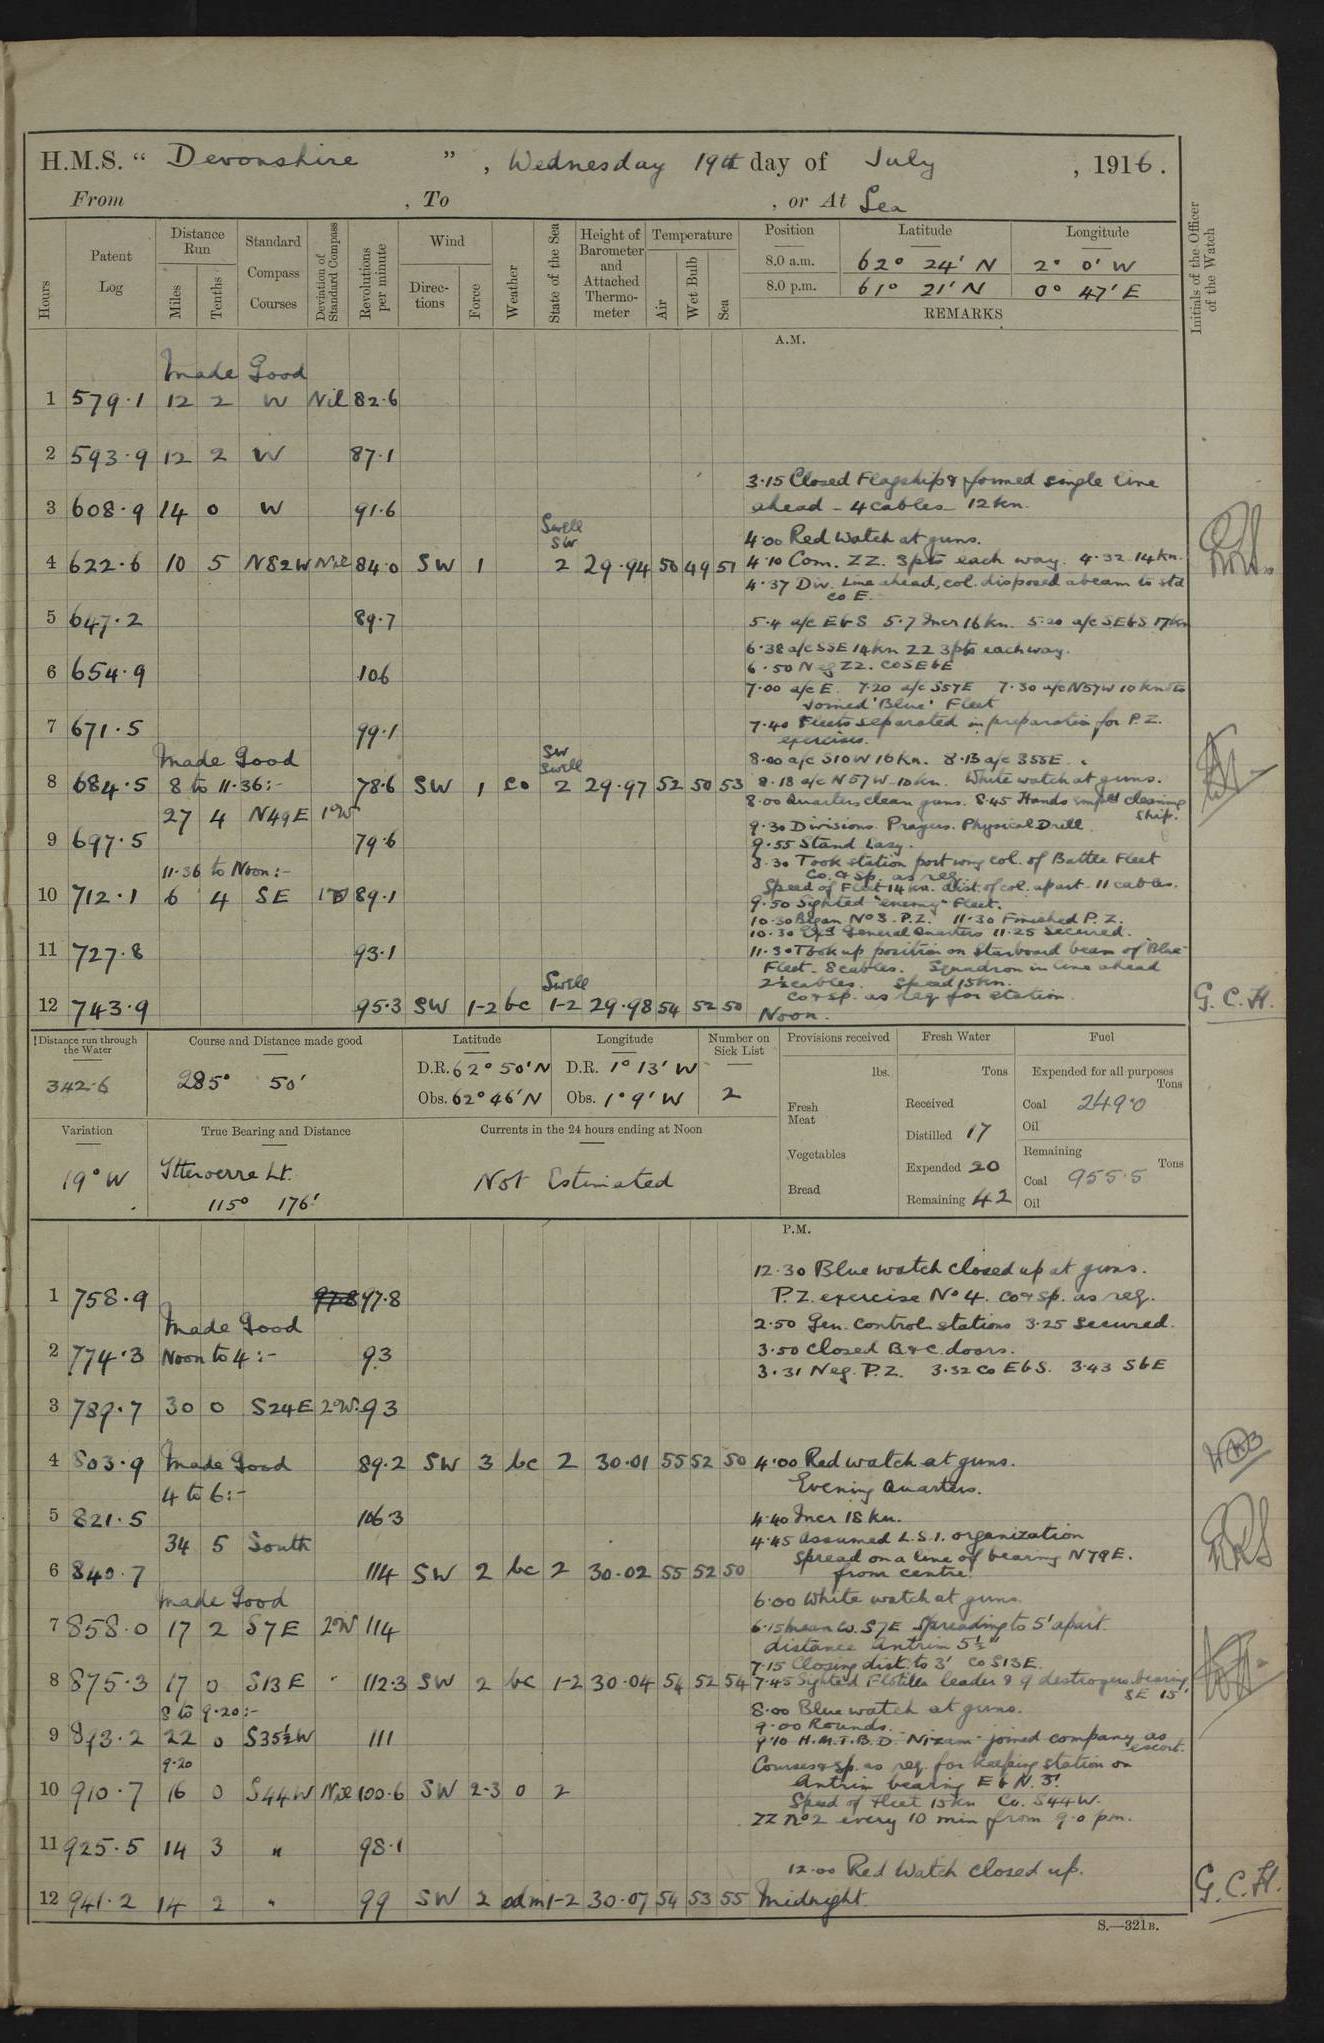 H.M.S. “ Devonshire ”, Wednesday 19th day of July, 1916.
From , To , or At Sea
Hours
Patent Log
Distance Run
Miles
Tenths
Standard Compass Courses
Deviation of Standard Compass
Revolutions per minute
Wind
Directions
Force
Weather
State of the Sea
Height of Barometer and Attached Thermometer
Temperature
Air
Wet Bulb
Sea
Position Latitude Longitude
8.0 a.m. 62° 24' N 2° 0' W
8.0 p.m. 61° 21' N 0° 47' E
REMARKS
Initials of the Officer of the Watch
A.M.
Made Good
1 579.1 12 2 W Nil 82.6
2 593.9 12 2 W 87.1
3.15 Closed Flagship & formed single line
3 608.9 14 0 W 91.6
ahead - 4 cables - 12 kn.
Swell SW
4.00 Red Watch at guns.
4 622.6 10 5 N82W Nil 84.0 SW 1 2 29.94 50 49 51
4.10 Com. ZZ. 3pts each way. 4.32 14kn.
4.37 Div. Line ahead, col. disposed abeam to std
co E.
5 647.2 89.7
5.4 a/c EbS 5.7 Incr 16 kn. 5.20 a/c SEbS 17kn
6.38 a/c SSE 14kn ZZ 3pts each way.
6 654.9 106
6.50 Neg ZZ. co SEbE
7.00 a/c E. 7.20 a/c S57E 7.30 a/c N57W 10 kn
Joined 'Blue' Fleet
7 671.5 99.1
7.40 Fleets separated in preparation for P.Z.
exercises.
Made Good
SW Swell
8.00 a/c S10W 16kn. 8.13 a/c S55E.
8 684.5 8 to 11.36:- 78.6 SW 1 co 2 29.97 52 50 53
8.18 a/c N57W 10kn. White watch at guns.
8.00 Quarters clean guns. 8.45 Hands empld cleaning
ship.
27 4 N49E 1°W
9.30 Divisions. Prayers. Physical Drill
9 697.5 79.6
9.55 Stand Easy.
8.30 Took station port wing col. of Battle Fleet
11.36 to Noon:-
Co. & sp. as req.
10 712.1 6 4 SE 89.1
Speed of Fleet 14 kn. dist. of col. apart 11 cables.
9.50 Sighted "enemy" Fleet.
10.30 Began No 3 P.Z. 11.30 Finished P.Z.
10.30 General Quarters 11.25 Secured.
11 727.8 93.1
11.30 Took up position on Starboard beam of 'Blue'
Fleet. 8 cables. Squadron in line ahead
2½ cables. Speed 15kn.
Swell
Co & sp. as req for station.
12 743.9 95.3 SW 1-2 bc 1-2 29.98 54 52 50 Noon. G.C.H.
Distance run through the Water
342.6
Course and Distance made good
285° 50'
Latitude
D.R. 62° 50' N
Obs. 62° 46' N
Longitude
D.R. 1° 13' W
Obs. 1° 9' W
Number on Sick List
2
Provisions received
lbs.
Fresh Meat
Vegetables
Bread
Fresh Water
Tons
Received
Distilled 17
Expended 20
Remaining 42
Fuel
Expended for all purposes
Tons
Coal 249.0
Oil
Remaining
Tons
Coal 955.5
Oil
Variation
19° W
True Bearing and Distance
115° 176'
Currents in the 24 hours ending at Noon
Not Estimated
P.M.
12.30 Blue watch closed up at guns.
1 758.9 97.8
P.Z. exercise No 4. Co & sp. as req.
Made Good
2.50 Gen. Control stations 3.25 Secured.
2 774.3 Noon to 4:- 93
3.50 Closed B & C. doors.
3.31 Neg. P.Z. 3.32 co EbS. 3.43 SbE
3 789.7 30 0 S24E 2°W. 93
4 803.9 Made Good 89.2 SW 3 bc 2 30.01 55 52 50 4.00 Red watch at guns.
4 to 6:-
Evening Quarters.
5 821.5 106.3
4.40 Incr 18 kn.
34 5 South
4.45 Assumed L.S.1. organization
Spread on a line of bearing N79E.
from centre.
6 840.7 114 SW 2 bc 2 30.02 55 52 50
Made Good
6.00 White watch at guns.
7 858.0 17 2 S7E 2°W 114
6.15 mean co. S7E Spreading to 5' apart.
distance Antrim 5½'
7.15 Closing dist. to 3' Co S13E.
8 875.3 17 0 S13E " 112.3 SW 2 bc 1-2 30.04 54 52 54
7.45 Sighted Flotilla leader & 9 destroyers bearing
SE 15'
8 to 9.20:-
8.00 Blue watch at guns.
9.00 Rounds.
9 893.2 22 0 S35½W 111
9.10 H.M.T.B.D. "Nizam" joined company as
escort.
9.20
Courses & sp. as req. for keeping station on
10 910.7 16 0 S44W Nil 100.6 SW 2-3 o 2
Antrim bearing EbN. 3'.
Speed of Fleet 15 kn Co. S44W.
ZZ No 2 every 10 min from 9.0 pm.
11 925.5 14 3 " 98.1
12.00 Red Watch closed up.
12 941.2 14 2 " 99 SW 2 odm 1-2 30.07 54 53 55 Midnight. G.C.H.
S.—321B.